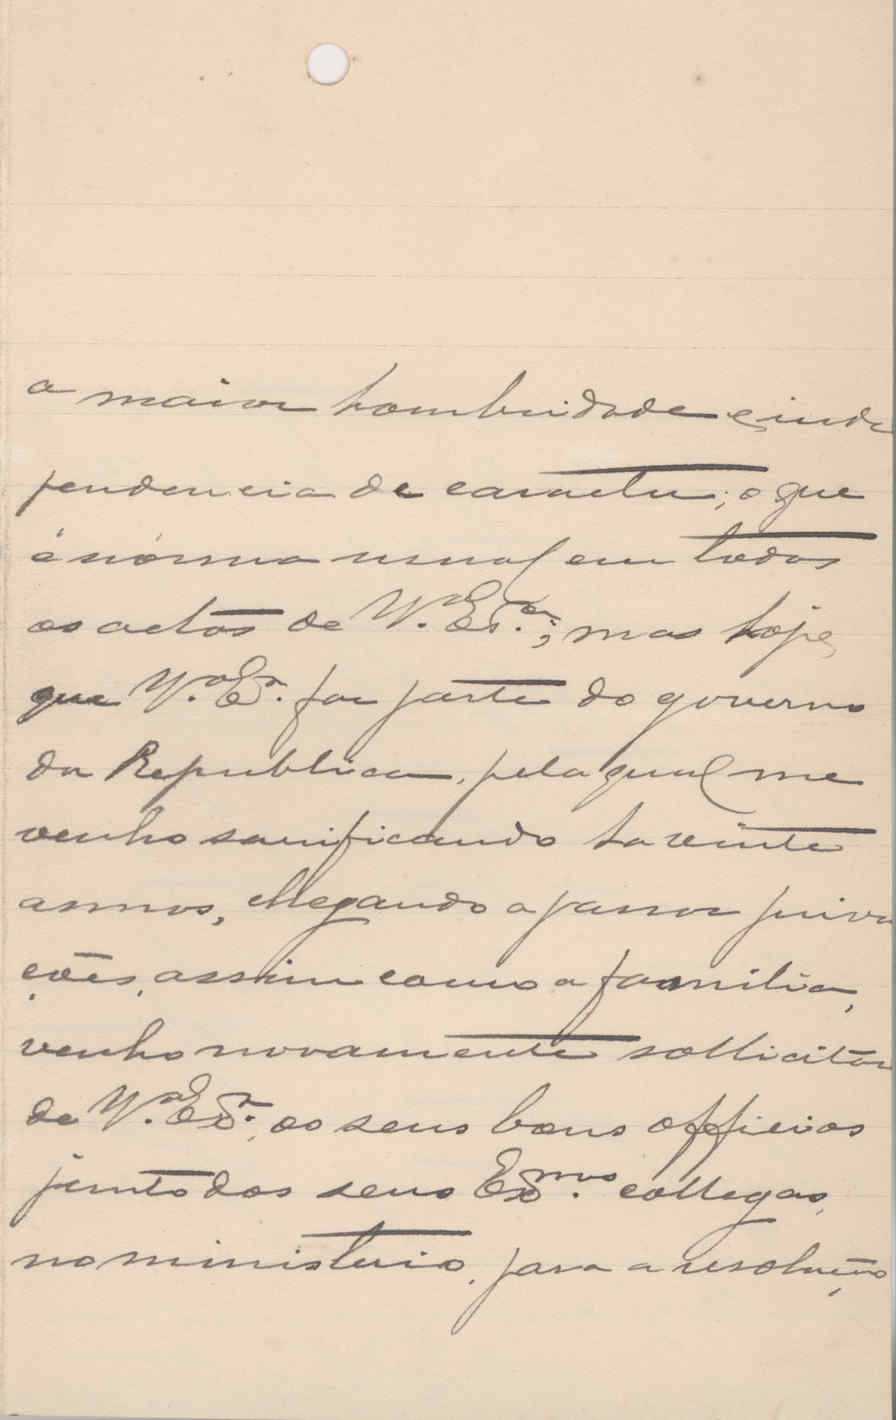 a maior hombridade e inde
pendencia de caracter; o que
é nórma usual em todos
os actos de V.ª Ex.ª; mas hoje,
que V.ª Ex.ª faz parte do governo
da Republica, pela qual me
venho sacrificando ha vinte
annos, chegando a passar priva
ções, assim como a familia,
venho novamente sollicitar
de V.ª Ex.ª, os seus bons officios
junto dos seus Ex.mos collegas,
no ministerio, para a resolução